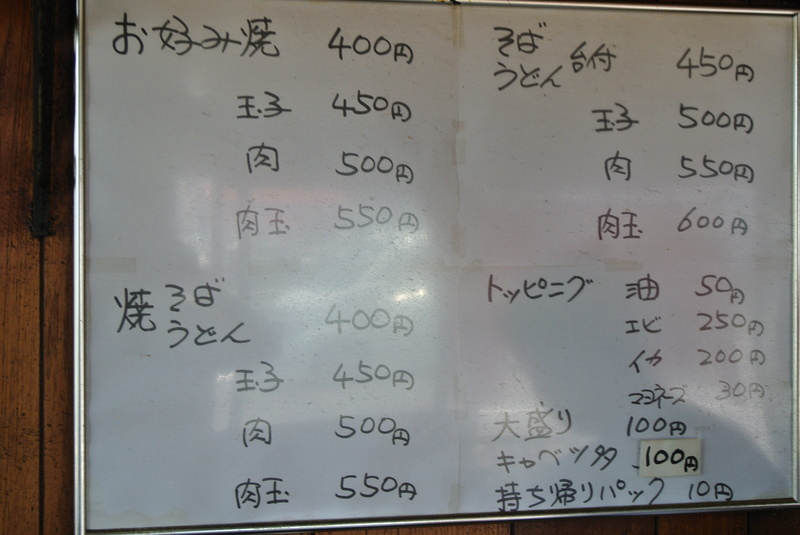 お好み焼 400円
玉子 450円
肉 500円
肉玉 550円
焼そば
うどん 400円
玉子 450円
肉 500円
肉玉 550円
そば
うどん 台付 450円
玉子 500円
肉 550円
肉玉 600円
トッピング 油 50円
エビ 250円
イカ 200円
マヨネーズ 30円
大盛り 100円
キャベツ多 100円
持ち帰りパック 10円